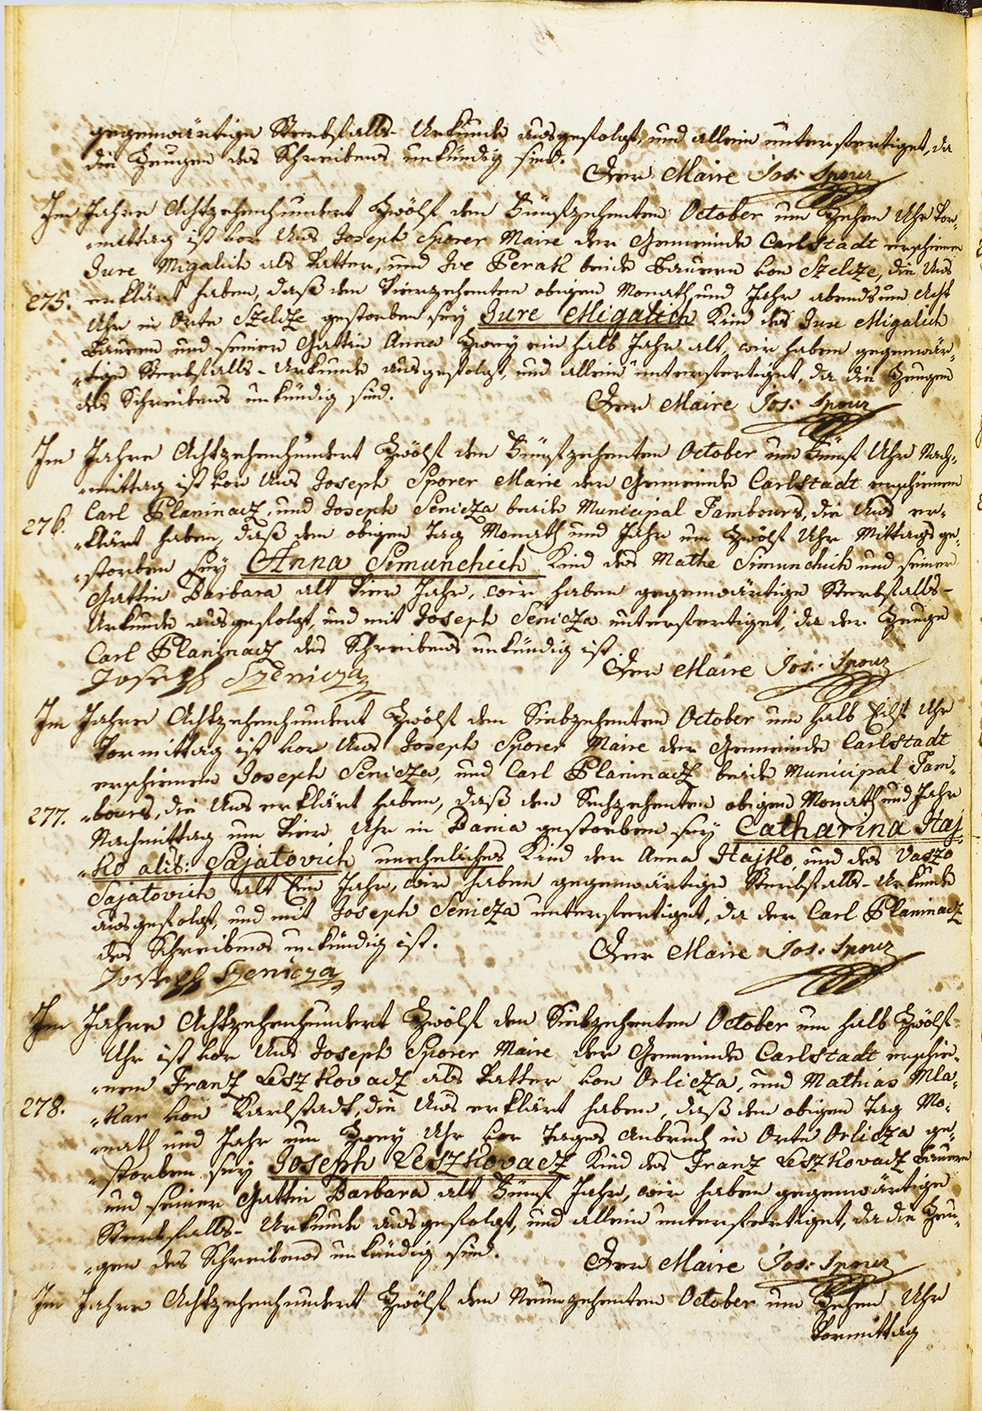 gegenwärtige Sterbfalls-Urkunde ausgefolgt, und allein unterfertiget, da
die Zeugen des Schreibens unkündig sind.
Der Maire Jos: Sporer
Im Jahre Achtzehenhundert Zwölf den Fünfzehenten October um Zehen Uhr Vor-
mittag ist vor Uns Joseph Sporer Maire der Gemeinde Carlstadt erschienen
Jure Migalich als Vatter, und Ive Perak beide Bauern von Szelcze, die Uns
275. erklärt haben, daß den Vierzehenten obigen Monath, und Jahr abends um Acht
Uhr in Orte Szelcze gestorben sey Jure Migalich Kind des Jure Migalich
Bauern und seiner Gattin Anna Zwey ein halb Jahr alt, wir haben gegenwär-
-tige Sterbfalls-Urkunde ausgefolgt, und allein unterfertiget, da die Zeugen
des Schreibens unkündig sind.
Der Maire Jos: Sporer
Im Jahre Achtzehenhundert Zwölf den Fünfzehenten October um Fünf Uhr Nach-
-mittag ist vor Uns Joseph Sporer Maire der Gemeinde Carlstadt erschienen
276. Carl Planinacz, und Joseph Senicza beide Municipal Tambours, die Uns er-
-klärt haben, daß den obigen Tag Monath und Jahr um Zwölf Uhr Mittags ge-
-storben sey Anna Simunchich Kind des Mathe Simunchich und seiner
Gattin Barbara alt Vier Jahr, wir haben gegenwärtige Sterbfalls-
Urkunde ausgefolgt, und mit Joseph Senicza unterfertiget, da der Zeuge
Carl Planinacz des Schreibens unkündig ist.
Der Maire Jos: Sporer
Joseph Szenicza
Im Jahre Achtzehenhundert Zwölf den Siebzehenten October um halb Eilf Uhr
Vormittag ist vor Uns Joseph Sporer Maire der Gemeinde Carlstadt
erschienen Joseph Senicza, und Carl Planinacz beide Municipal Tam-
277. -bours, die Uns erklärt haben, daß den Sechzehenten obigen Monath und Jahr
Nachmittag um Vier Uhr in Bania gestorben sey Catharina Haj-
-ko alit: Sajatovich unehliches Kind der Anna Hajko, und des Vaszo
Sajatovich alt Ein Jahr, wir haben gegenwärtige Sterbfalls-Urkunde
ausgefolgt, und mit Joseph Senicza unterfertiget, da der Carl Planinacz
des Schreibens unkündig ist.
Der Maire Jos: Sporer
Joseph Szenicza
Im Jahre Achtzehenhundert Zwölf den Siebzehenten October um halb Zwölf
Uhr ist vor Uns Joseph Sporer Maire der Gemeinde Carlstadt erschie-
-nen Franz Leszkovacz als Vatter von Orlicza, und Mathias Mla-
278. -kar von Karlstadt, die Uns erklärt haben, daß den obigen Tag Mo-
-nath und Jahr um Zwey Uhr vor Tages Anbruch in Orte Orlicza ge-
-storben sey Joseph Leszkovacz Kind des Franz Leszkovacz Bauern
und seiner Gattin Barbara alt Fünf Jahr, wir haben gegenwärtige
Sterbfalls-Urkunde ausgefolgt, und allein unterfertiget, da die Zeu-
-gen des Schreibens unkündig sind.
Der Maire Jos: Sporer
Im Jahre Achtzehenhundert Zwölf den Neunzehenten October um Zehen Uhr
Vormittag